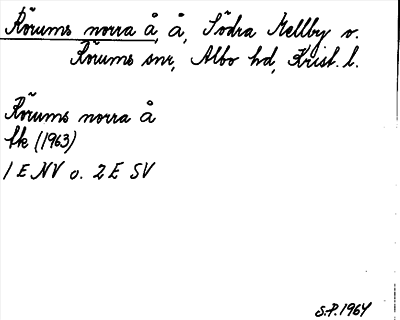 Rörums norra å, å, Södra Mellby o.
Rörums snr, Albo hd, Krist. l.
Rörums norra å
Ek (1963)
1 E NV o. 2 E SV
S.P. 1964